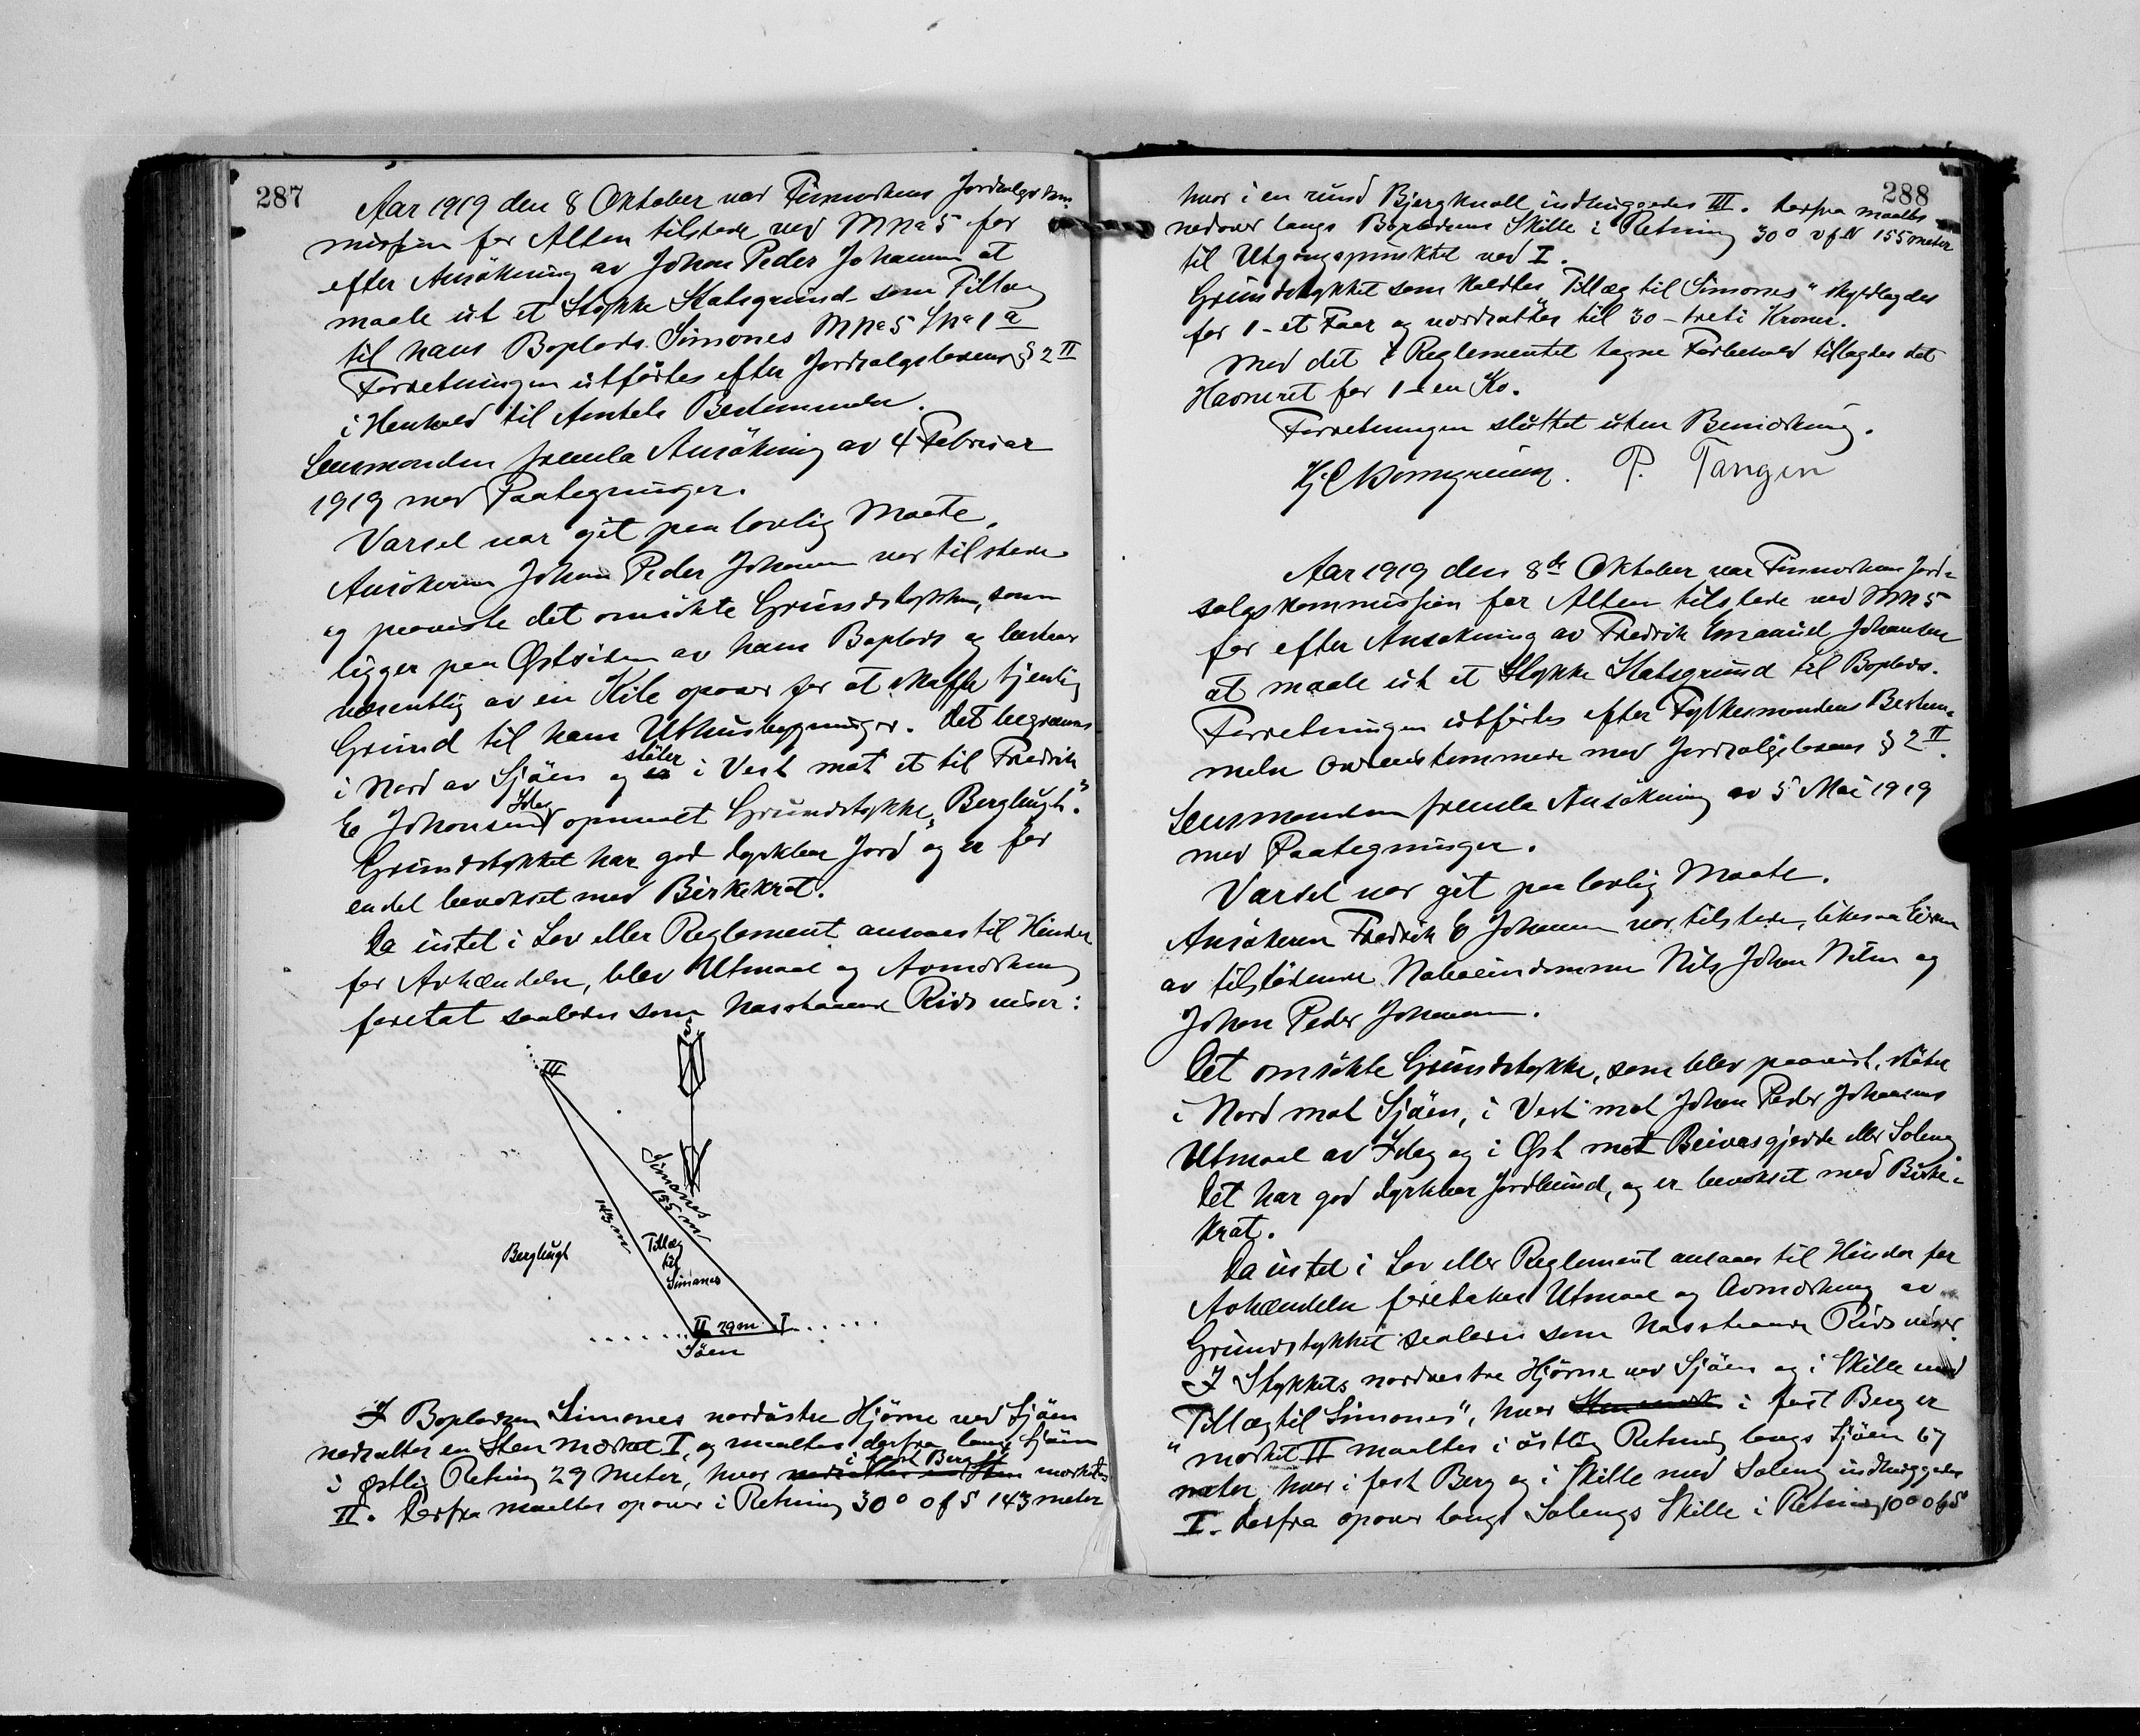 287
Aar 1919 den 8 Oktober var Finmarkens Jordsalgskom-
mission for Alten tilstede ved MNo 5 for
efter Ansökning av Johan Peder Johansen at
maale ut et Stykke Statsgrund som Tillæg
til hans Boplads Simones MNo 5 LNo 1 a
Forretningen utförtes efter Jordsalgslovens § 2 II
i Henhold til Amtets Bestemmelse.
Lensmanden fremla Ansökning av 4 Februar
1919 med Paategninger.
Varsel var git paa lovlig Maate.
Ansökeren Johan Peder Johansen var tilstede
og paaviste det omsökte Grundstykke, som
ligger paa Østsiden av hans Boplads og bestaar
væsentlig av en Kile opover for at skaffe tjenlig
Grund til hans Uthusbygninger. Det begrænses
i Nord av Sjöen og stöter i Vest mot et til Fredrik
E Johansen Idag opmaalt Grundstykke "Berglugt".
Grundstykket har god dyrkbar Jord og er for
en del bevokset med Birkekrat.
Da intet i Lov eller Reglement ansaaes til Hinder
for Avhændelse, blev Utmaal og Avmerkning
foretat saaledes som hosstaaende Rids viser:
S
III
Simones
155 m
143 m
Tillæg
til
Simones
Berglugt
II 29 m I
Söen
I Bopladsen Simones nordöstre Hjörne ved Sjöen
nedsattes en Sten mærket I, og maaltes derfra langs Sjöen
i østlig Retning 29 Meter, hvor i fast Berg merkedes
II. Derfra maaltes opover i Retning 30° o f S 143 meter
288
hvor i en rund Bjergknall indhuggedes III. Derfra maaltes
nedover langs Bopladsens Skille i Retning 30° v f N 155 meter
til Utgangspunktet ved I.
Grundstykket som kaldtes "Tillæg til Simones" skyldlagdes
for 1 - et Faar og værdsattes til 30 - treti Kroner.
Med det i Reglementet tagne Forbehold tillagdes det
Havneret for 1 - en Ko.
Forretningen sluttet uten Bemærkning.
P. Tangen
Aar 1919 den 8de Oktober var Finmarkens Jord-
salgskommission for Alten tilstede ved MN 5
for efter Ansøkning av Fredrik Emanuel Johansen
at maale ut et Stykke Statsgrund til Boplads.
Forretningen utförtes efter Fylkesmandens Bestem-
melse overensstemmende med Jordsalgslovens § 2 II.
Lensmanden fremla Ansökning av 5 Mai 1919
med Paategninger.
Varsel var git paa lovlig Maate.
Ansökeren Fredrik E Johansen var tilstede, likesaa Eierne
av tilstödende Naboeiendomme Nils Johan Nilsen og
Johan Peder Johansen.
Det omsökte Grundstykke, som blev paavist, støter
i Nord mot Sjöen, i Vest mot Johan Peder Johansens
Utmaal av Idag og i Øst mot Beivasgjedde eller Soleng
Det har god dyrkbar Jordbund, og er bevokset med Birke-
krat.
Da intet i Lov eller Reglement ansaaes til Hinder for
Avhændelse foretokes Utmaal og Avmerkning av
Grundstykket saaledes som hosstaaende Rids viser.
I Stykkets nordvestre Hjörne ved Sjöen og i Skille med
"Tillæg til Simones", hvor i fast Berg er
merket II maaltes i östlig Retning langs Sjöen 67
meter hvor i fast Berg og i Skille med Soleng indhuggedes
I. Derfra opover langs Solengs Skille i Retning 10° o f S